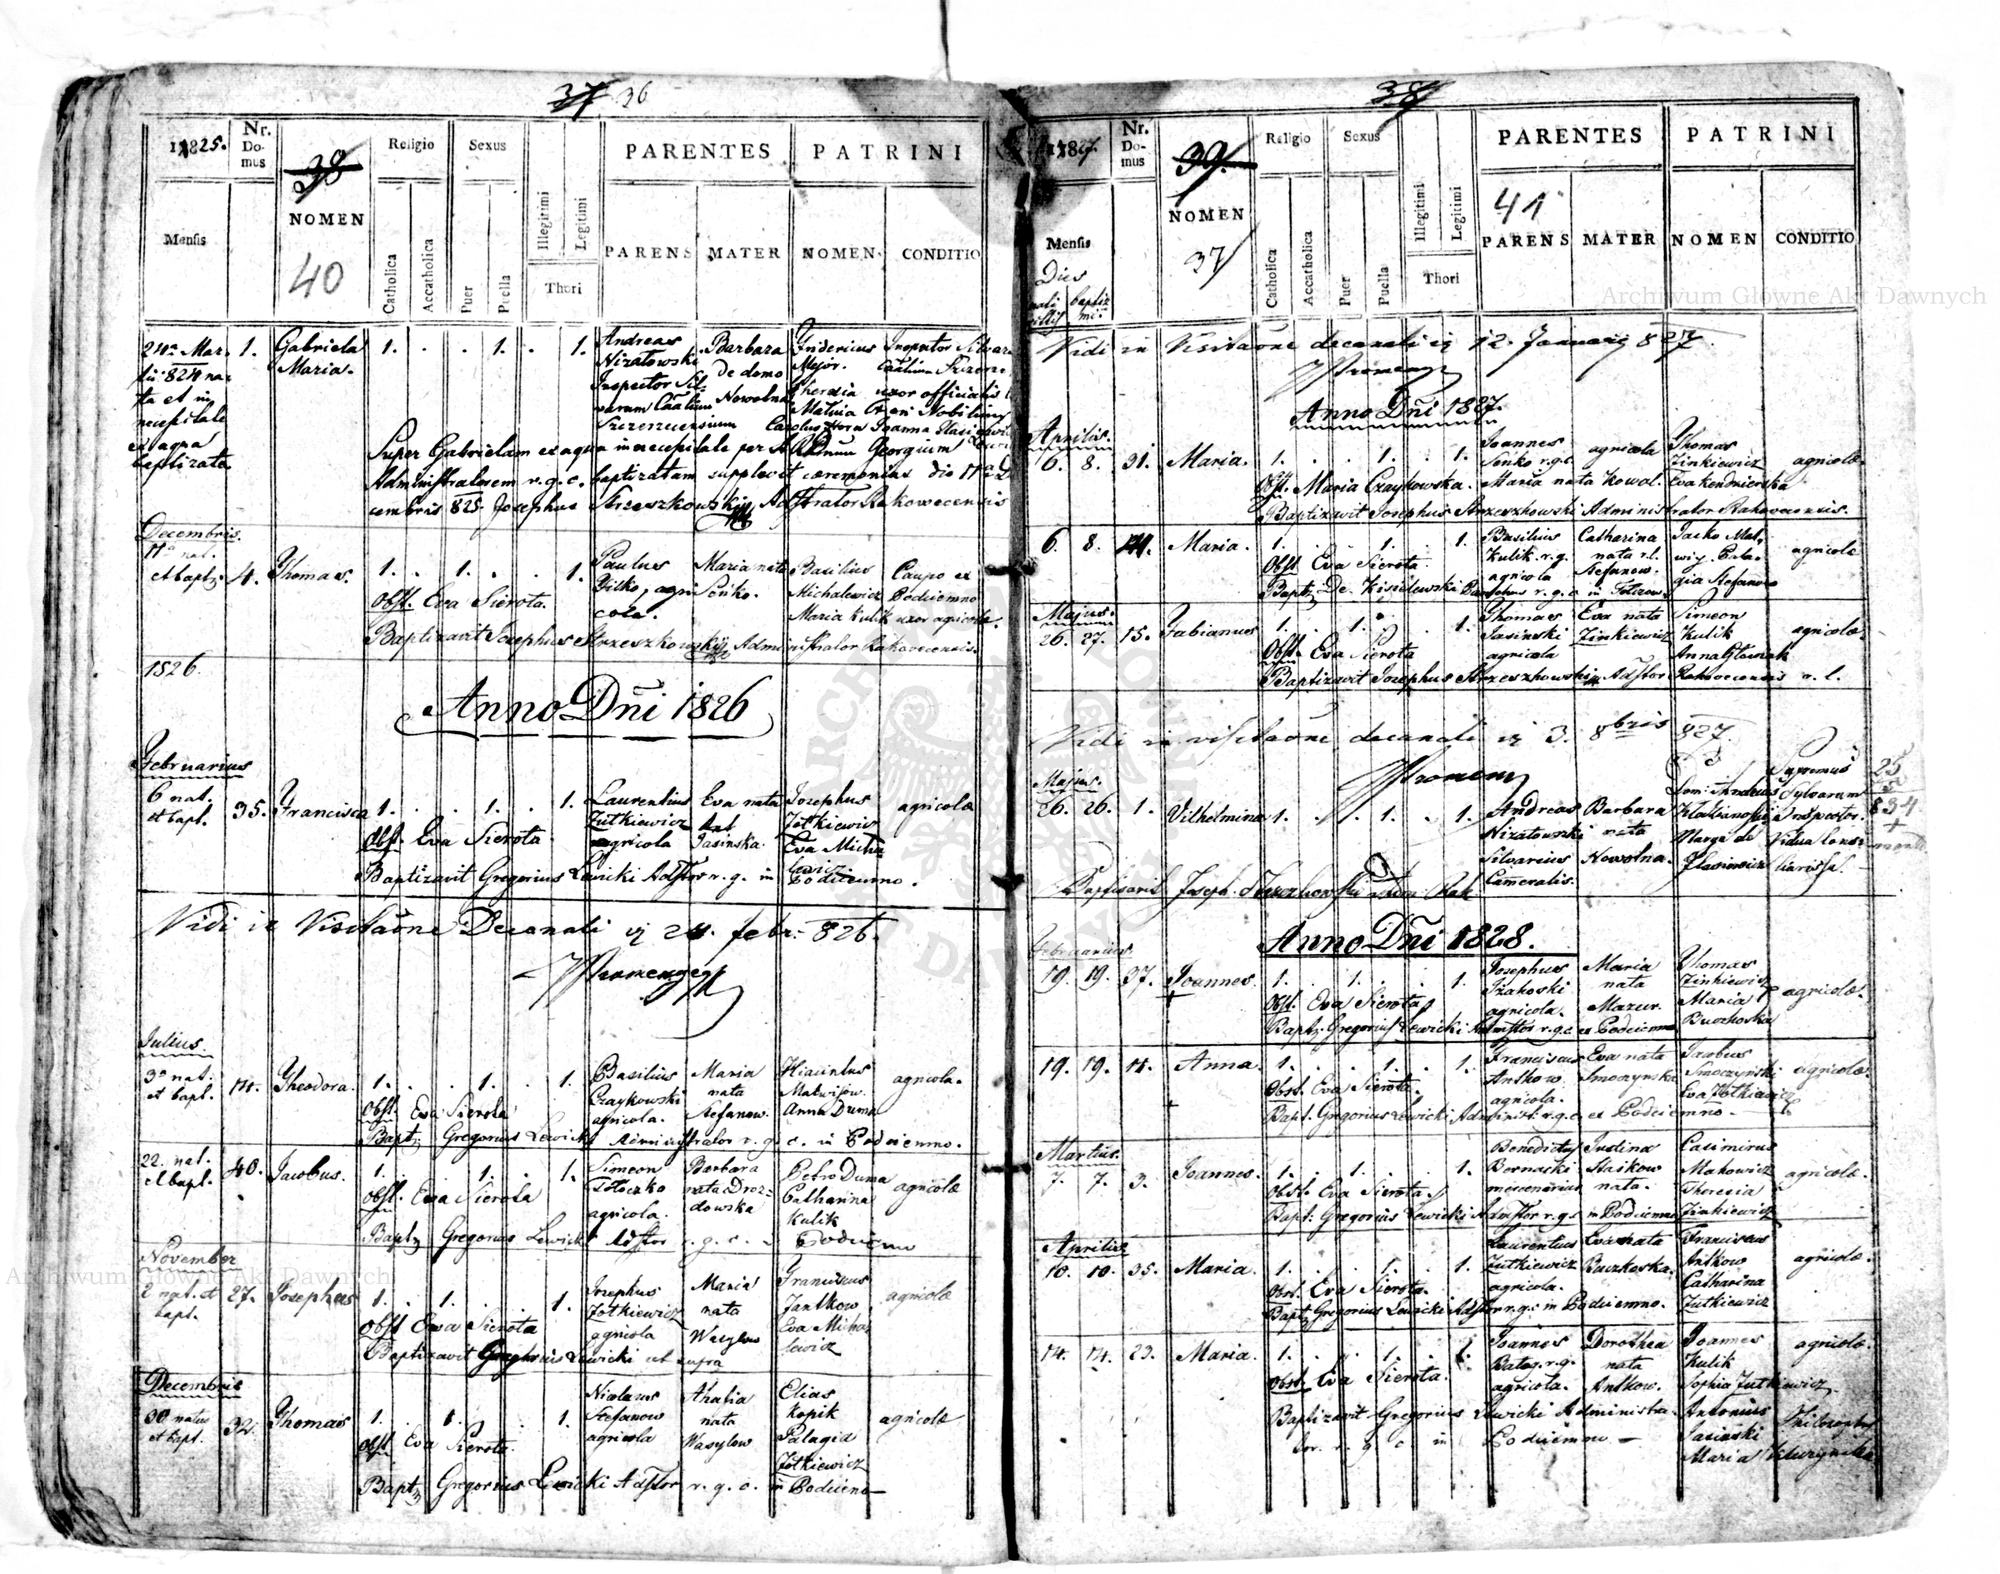 37 36
1825.
Nr. Do- mus
38
NOMEN
40
Religio
Sexus
Illegitimi
Legitimi
PARENTES
PATRINI
Mensis
Catholica
Accatholica
Puer
Puella
Thori
PARENS
MATER
NOMEN
CONDITIO
21ma Mar- 1. Gabriela 1. . . 1. . 1. Andreas Barbara Fridericus Inspector Silvar
tii 824 na- Maria. Nizatowski De domo Major.
ta et in Inspector Sil- Nowolna uxor officialis
necessitate varum
ex aqua
baptizata
Super Gabrielam ex aqua in necessitate per Georgium
Administratorem r. g. c. baptizatam supplevit ceremonias die 11a De-
cembris 825. Josephus Strzeszkowski Adstrator Rakowecensis
Decembris
11a nat. et bapt. 4. Thomas. 1. . 1. . . 1. Paulus Maria nata Basilius Caupo ex
Bilko, agri- Senko. Michalewicz Podciemno
Obst. Eva Sierota. cola. Maria Kulik uxor agricolae
Baptizavit Josephus Strzeszkowski Administrator Rakovecensis
1826
Anno Dni 1826
Februarius
6 nat. et bapt. 35. Francisca 1. . . 1. . 1. Laurentius Eva nata Josephus agricolæ
Zutkiewicz Ant. Zotkiewicz
Obst. Eva Sierota agricola Jasinska. Eva Micha-
lewicz
Baptizavit Gregorius Lewicki Adstor r. g. in Podciemno.
Vidi in Visitaône Decanali 24. febr. 826.
Julius.
3a nat. et bapt. 14. Theodora. 1. . . 1. . 1. Basilius Maria Hiacintus agricola.
Czaykowski nata Matwisow.
Obst. Eva Sierota agricola. Stefanow. Anna Duma
Bapt. Gregorius Lewicki Administrator r. g. c. in Podciemno.
22. nat. et bapt. 40. Jacobus. 1. . . 1. . 1. Simeon Barbara Petro Duma agricolæ
Tłoczko nata Droz- Catharina
Obst. Eva Sierota agricola. dowska Kulik
Bapt. Gregorius Lewicki Adstor r. g. c. Podciem
November
2 nat. et bapt. 27. Josephus 1. . 1. . . 1. Josephus Maria Franciscus agricolæ
Zotkiewicz nata Jantkow
Obst. Eva Sierota agricola Wasylow Eva Micha-
lewicz
Baptizavit Gregorius Lewicki ut supra
Decembris
30 natus et bapt. 32. Thomas 1. . 1. . . 1. Nicolaus Ahafia Elias agricolæ
Stefanow nata Kopik
Obst. Eva Sierota. agricola Wasylow Palagia
Zotkiewicz
Bapt. Gregorius Lewicki Adstor r. g. c. in Podciemno
38
1827
Nr. Do- mus
39.
NOMEN
37
Religio
Sexus
Illegitimi
Legitimi
PARENTES
PATRINI
41
Mensis
Dies
nati baptiz
Catholica
Accatholica
Puer
Puella
Thori
PARENS
MATER
NOMEN
CONDITIO
Vidi in Visitaône decanali 12. Januarij 827.
Anno Dni 1827.
Aprilis.
6. 8. 31. Maria. 1. . . 1. . 1. Joannes agricola Thomas agricolæ.
Senko r.g.c. Zinkiewicz
Obst. Maria Czaykowska. Maria nata Kowal. Eva Kendzierska
Baptizavit Josephus Strzeszkowski Administrator Rakovecensis.
6. 8. 14. Maria. 1. . . 1. . 1. Basilius Catharina Jacko Mat- agricolæ
Kulik r.g. nata r.l. wiy. Pela-
Obst. Eva Sierota agricola Stefanow. gia Stefanow
Bapt. De Kisielewski Parochus r. g. c. in
Majus.
26. 27. 15. Fabianus 1. . 1. . . 1. Thomas Eva nata Simeon agricolæ.
Jasinski Zinkiewicz Kulik
Obst. Eva Sierota agricola Anna Główiak
Baptizavit Josephus Strzeszkowski Adstor Rakovecensis r. l.
Vidi in visitaône decanali 3. 8bris 827.
Majus.
26. 26. 1. Vilhelmina 1. . . 1. . 1. Andreas Barbara Dom: Andreas Supremus Sylvarum
Nizatowski nata Inspector.
Silvarius Nowolna. Vidua
Cameralis.
25
834
+
Baptisavit Joseph. Strzeszkowski Adm. Rak
Anno Dni 1828.
Februarius
19. 19. 37. Joannes. 1. . 1. . . 1. Josephus Maria Thomas agricolæ.
+ Izakoski nata Zinkiewicz
Obst. Eva Sierota agricola. Mazur. Maria
Buczkoska
Bapt. Gregorius Lewicki Admstor r.g.c. ex Podciemno
19. 19. 11. Anna. 1. . . 1. . 1. Franciscus Eva nata Jacobus agricolæ.
Antkow. Smoczynska Smoczyński
+ Obst. Eva Sierota agricola. Eva Zotkiewicz
Bapt. Gregorius Lewicki Administ. r.g.c. ex Podciemno
Martius.
7. 7. 3. Joannes. 1. . 1. . . 1. Benedictus Justina Casimirus agricolæ.
Bernacki Staikow Makowicz
Obst. Eva Sierota. mercenarius nata. Theresia
Zinkiewicz
Bapt. Gregorius Lewicki Admstor r.g.c in Podciemno
Aprilis
10. 10. 35. Maria. 1. . . 1. . 1. Laurentius Eva nata Franciscus agricolæ.
Zutkiewicz Buczkoska. Antkow
Obst. Eva Sierota. agricola. Catharina
Zutkiewicz
Bapt. Gregorius Lewicki Adstor r.g.c in Podciemno.
14. 14. 23. Maria. 1. . . 1. . 1. Joannes Dorothea Joannes agricolæ.
Batog. r.g. nata Kulik
Obst. Eva Sierota. agricola. Antkow. Sophia Zutkiewicz.
Baptizavit Gregorius Lewicki Administra- Antonius Philosophus
tor. r. g. c. in Podciemno Jasinski
Maria
Archiwum Główne Akt Dawnych
Archiwum Główne Akt Dawnych